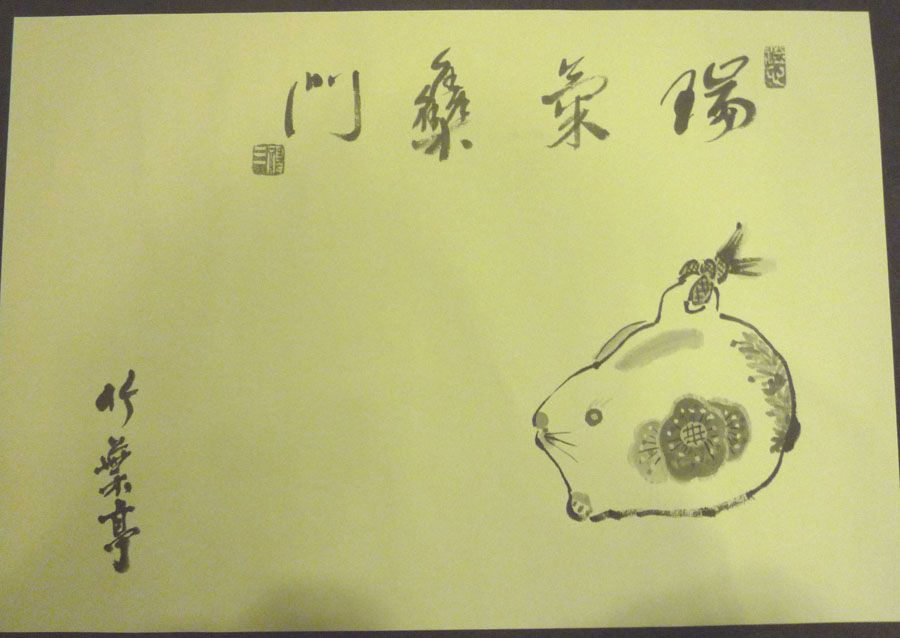 瑞氣雧門
竹葉亭